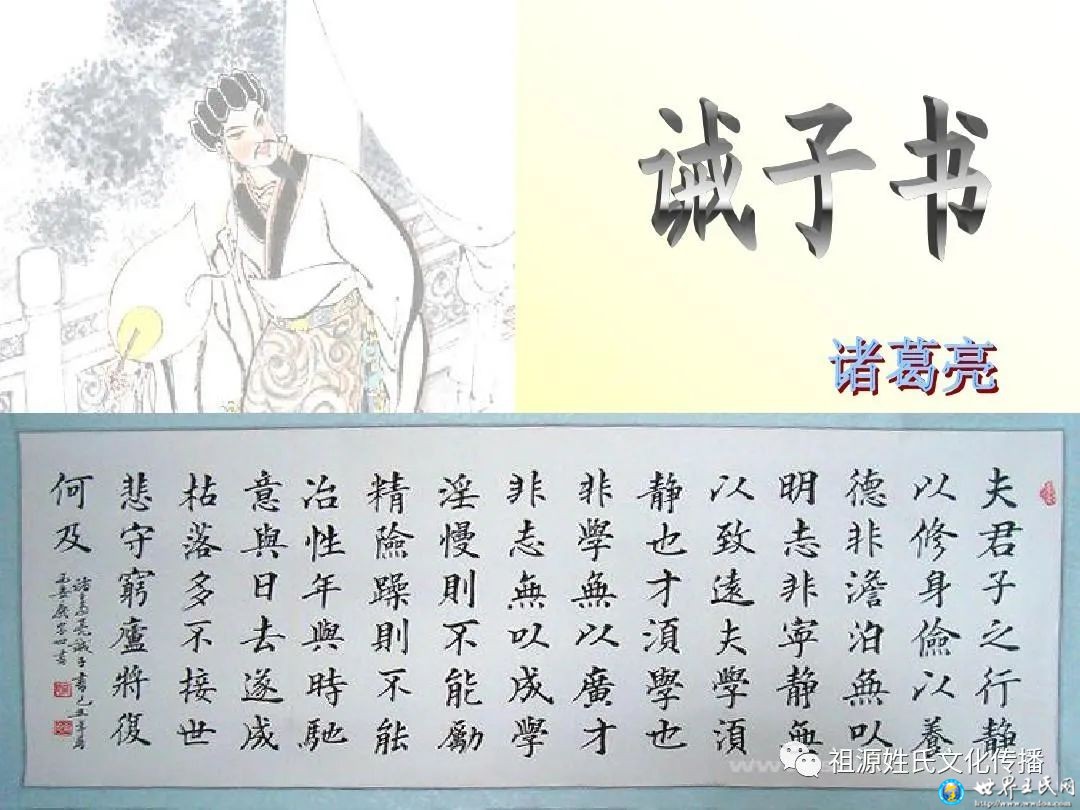 诫子书
诸葛亮
夫君子之行静
以修身儉以養
德非澹泊無以
明志非寧静無
以致遠夫學須
静也才須學也
非學無以廣才
非志無以成學
淫慢則不能勵
精險躁則不能
冶性年與時馳
意與日去遂成
枯落多不接世
悲守窮廬將復
何及
諸葛亮誡子書
祖源姓氏文化传播
世界王氏网